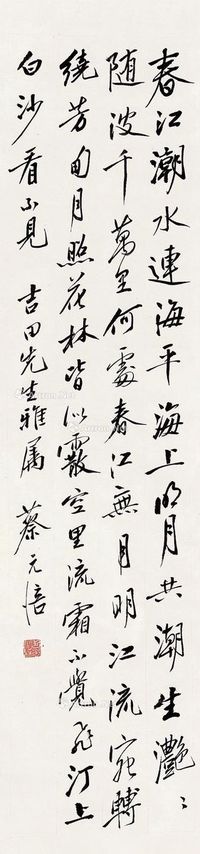 春江潮水連海平海上明月共潮生灔〻
随波千萬里何處春江無月明江流宛轉
繞芳甸月照花林皆似霰空里流霜不覺飛汀上
白沙看不見 吉田先生雅属 蔡元培